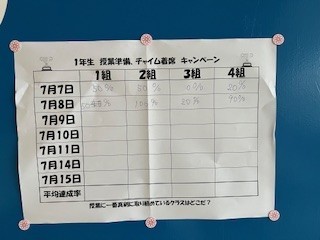 1年生 授業準備、チャイム着席 キャンペーン
1組 2組 3組 4組
7月7日 20%
7月8日 100% 20% 90%
7月9日
7月10日
7月11日
7月14日
7月15日
平均達成率
授業に一番真剣に取り組めているクラスはどこだ?